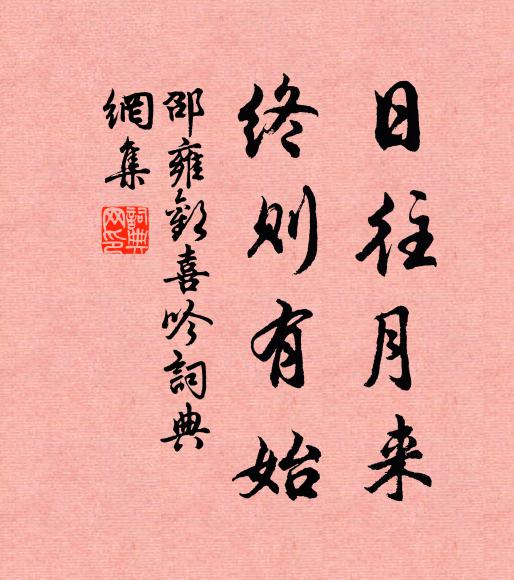 日往月来
终则有始
邵雍歡喜吟詞典
網集
詞典
网印